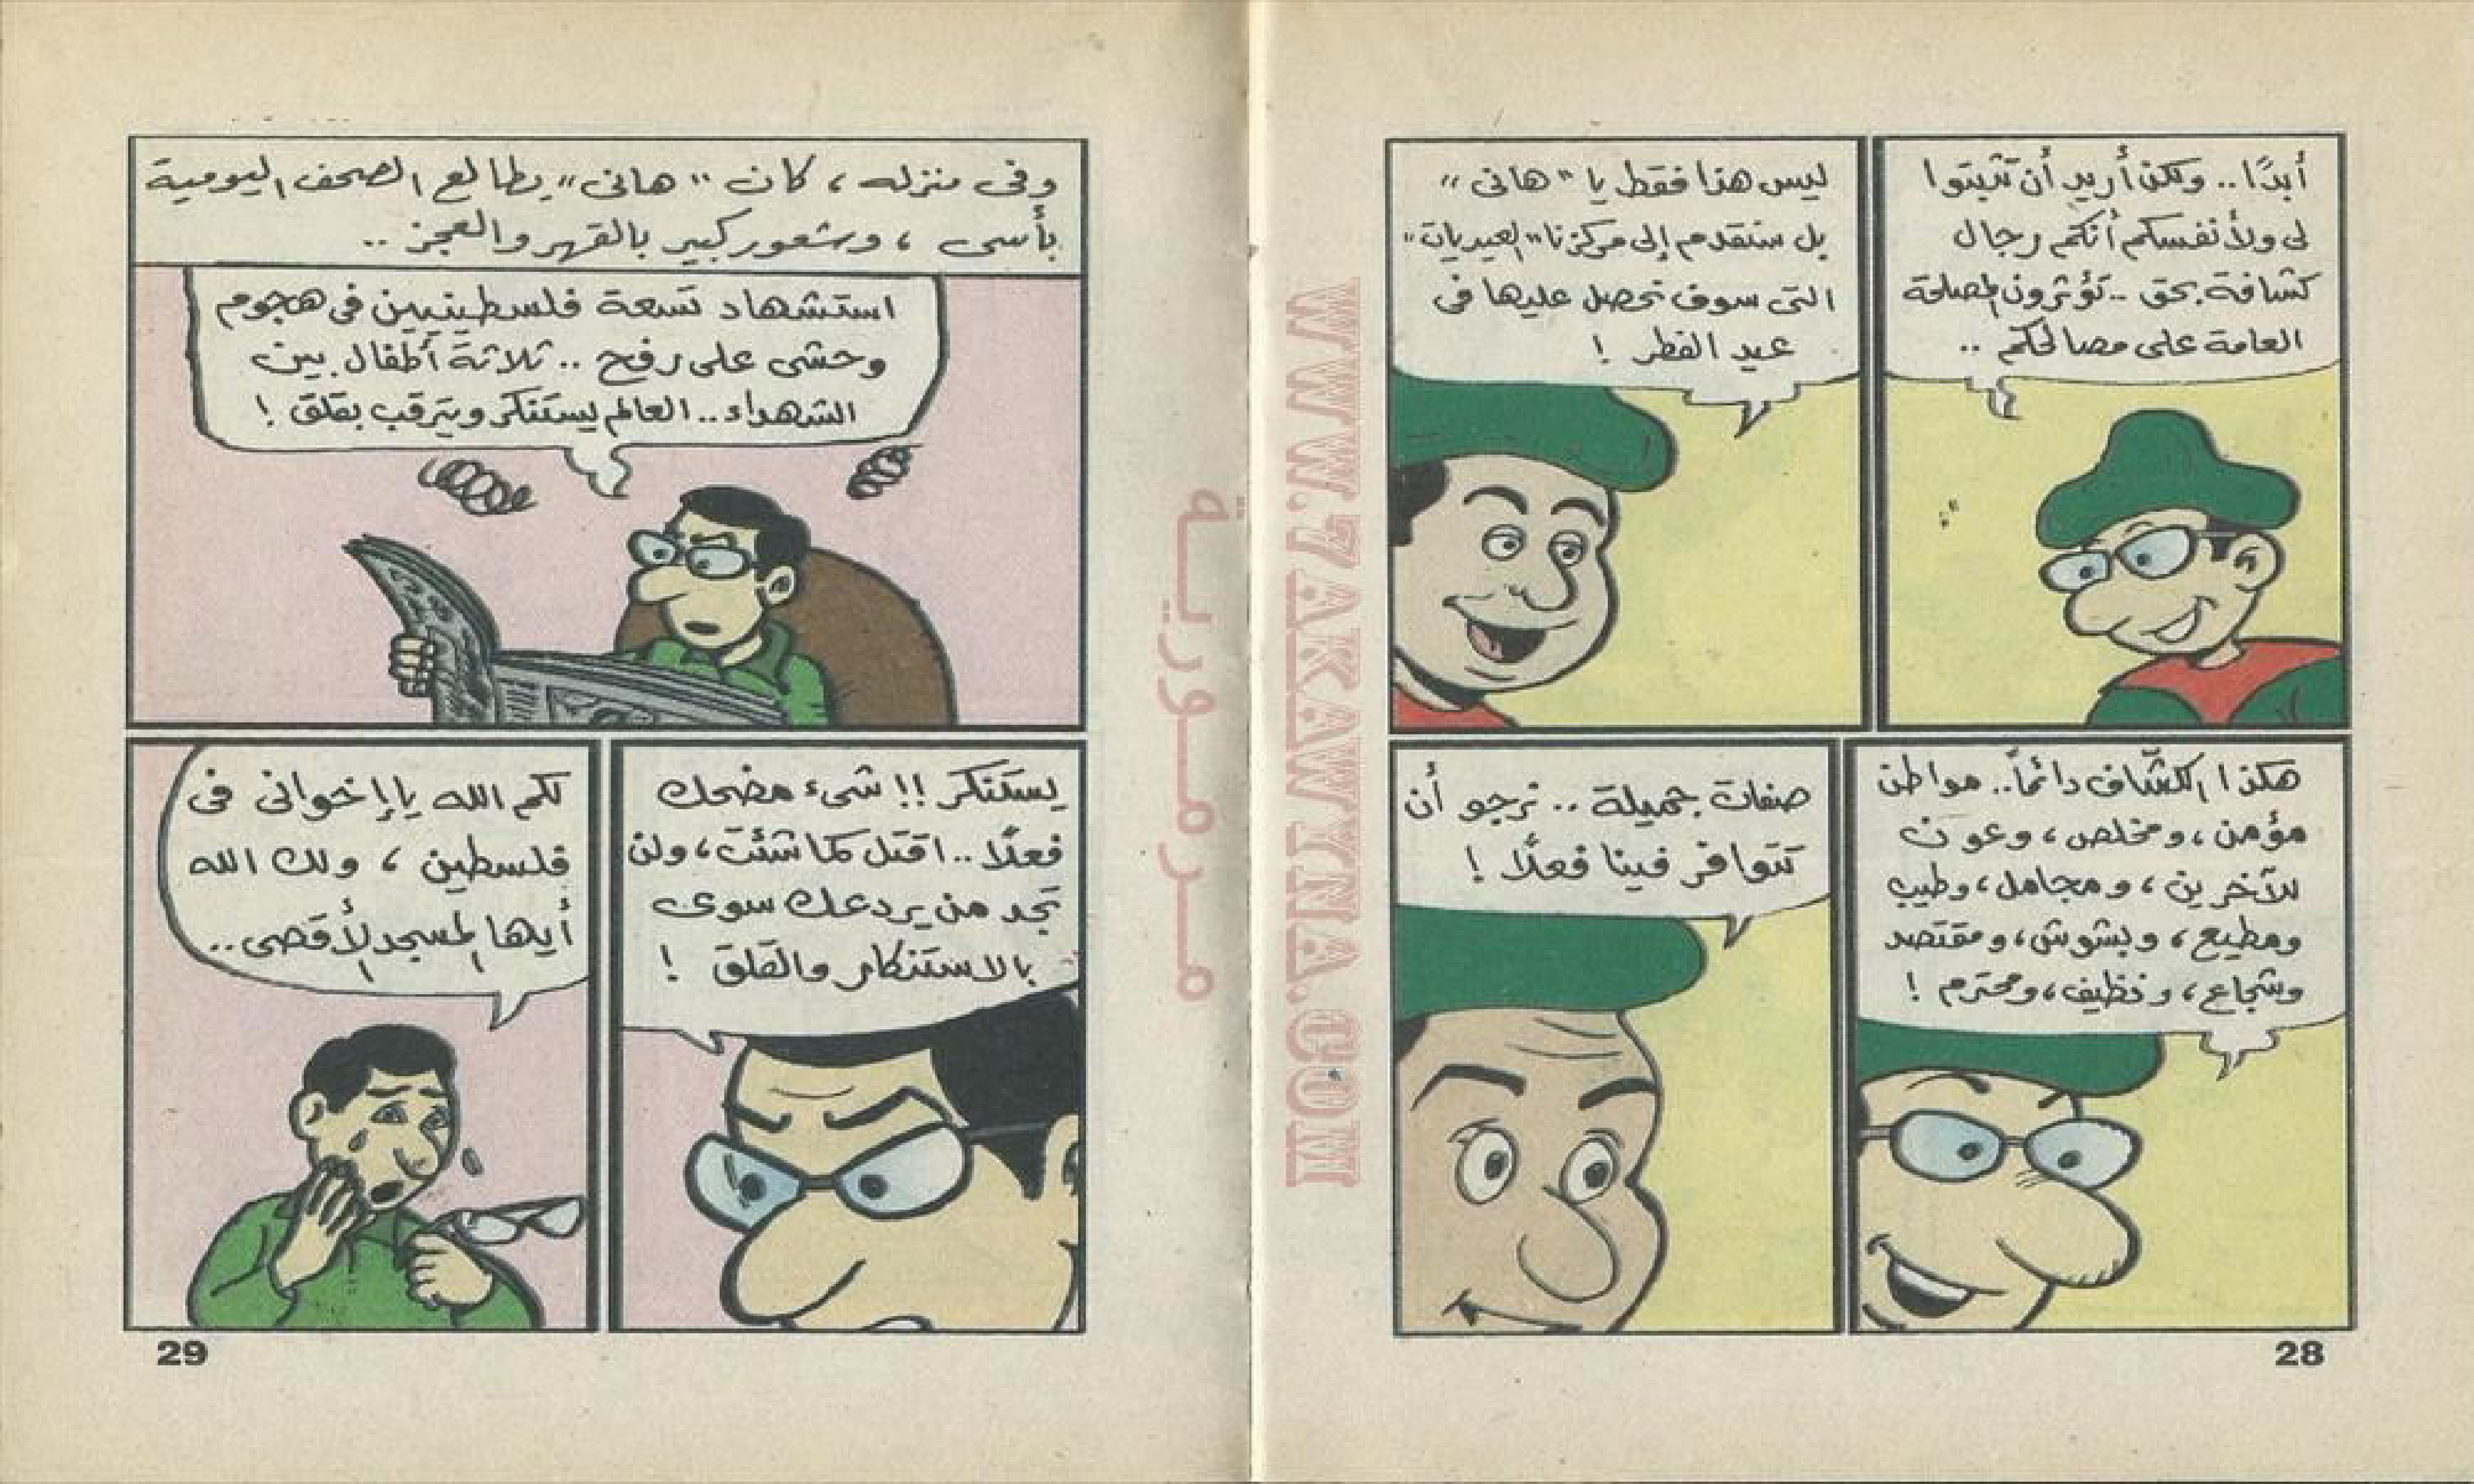 أبدًا.. ولكن أريد أن تثبتوا
لى ولأنفسكم أنكم رجال
كشافة بحق.. تؤثرون المصلحة
العامة على مصالحكم..
ليس هذا فقط يا "هانى"
بل ستقدم إلى مركزنا "العيديات"
التى سوف تحصل عليها فى
عيد الفطر !
هكذا الكشّاف دائمًا.. مواطن
مؤمن، ومخلص، وعون
للآخرين، ومجامل، وطيب
ومطيع، وبشوش، ومقتصد
وشجاع، ونظيف، ومحترم !
صفات جميلة.. نرجو أن
تتوافر فينا فعلًا !
28
WWW.ZAKAWINA.COM
مرمورية
وفى منزله، كان "هانى" يطالع الصحف اليومية
بأسى، وشعور كبير بالقهر والعجز..
استشهاد تسعة فلسطينيين فى هجوم
وحشى على رفح.. ثلاثة أطفال بين
الشهداء.. العالم يستنكر ويترقب بقلق !
يستنكر !! شىء مضحك
فعلًا.. اقتل كما شئت، ولن
تجد من يردعك سوى
بالاستنكار والقلق !
لكم الله يا إخوانى فى
فلسطين، ولك الله
أيها المسجد الأقصى..
29